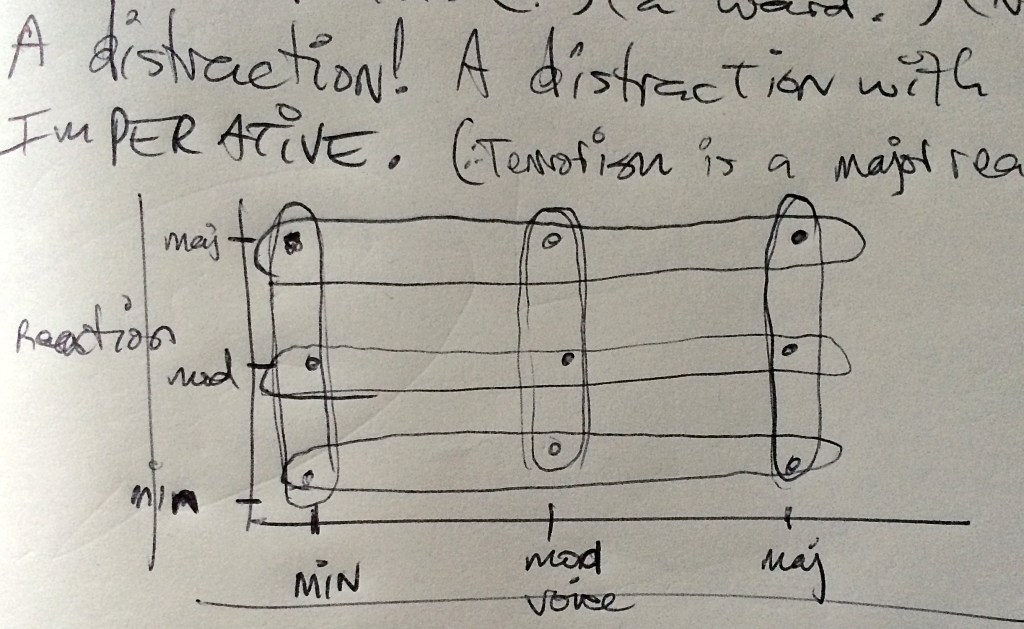 (a word.)
A distraction! A distraction with
IMPERATIVE. (:Terrorism is a major rea
maj
Reaction
mod
min
MIN mod maj
voice